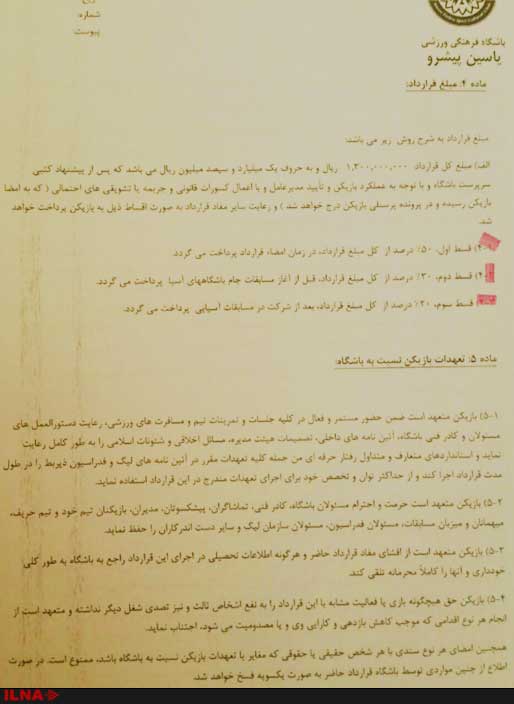 تاریخ
شماره:
پیوست:
باشگاه فرهنگی ورزشی
یاسین پیشرو
ماده ۴: مبلغ قرارداد:
مبلغ قرارداد به شرح روش زیر می باشد:
الف) مبلغ کل قرارداد ۱,۳۰۰,۰۰۰,۰۰۰ ریال و به حروف یک میلیارد و سیصد میلیون ریال می باشد که پس از پیشنهاد کتبی
سرپرست باشگاه و با توجه به عملکرد بازیکن و تأیید مدیرعامل و با اعمال کسورات قانونی و جریمه یا تشویقی های احتمالی ( که به امضا
بازیکن رسیده و در پرونده پرسنلی بازیکن درج خواهد شد ) و رعایت سایر مفاد قرارداد به صورت اقساط ذیل به بازیکن پرداخت خواهد
شد.
قسط اول، ۵۰٪ درصد از کل مبلغ قرارداد، در زمان امضاء قرارداد پرداخت می گردد.
قسط دوم، ۳۰٪ درصد از کل مبلغ قرارداد، قبل از آغاز مسابقات جام باشگاههای آسیا پرداخت می گردد.
قسط سوم، ۲۰٪ درصد از کل مبلغ قرارداد، بعد از شرکت در مسابقات آسیایی پرداخت می گردد.
ماده ۵: تعهدات بازیکن نسبت به باشگاه:
۵-۱) بازیکن متعهد است ضمن حضور مستمر و فعال در کلیه جلسات و تمرینات تیم و مسافرت های ورزشی، رعایت دستورالعمل های
مسئولان و کادر فنی باشگاه، آئین نامه های داخلی، تصمیمات هیئت مدیره، مسائل اخلاقی و شئونات اسلامی را به طور کامل رعایت
نماید و استانداردهای متعارف و متداول رفتار حرفه ای من جمله کلیه تعهدات مقرر در آئین نامه های لیگ و فدراسیون ذیربط را در طول
مدت قرارداد اجرا کند و از حداکثر توان و تخصص خود برای اجرای تعهدات مندرج در این قرارداد استفاده نماید.
۵-۲) بازیکن متعهد است حرمت و احترام مسئولان باشگاه، کادر فنی، تماشاگران، پیشکسوتان، مدیران، بازیکنان تیم خود و تیم حریف،
میهمانان و میزبان مسابقات، مسئولان فدراسیون، مسئولان سازمان لیگ و سایر دست اندرکاران را حفظ نماید.
۵-۳) بازیکن متعهد است از افشای مفاد قرارداد حاضر و هرگونه اطلاعات تحصیلی در اجرای این قرارداد راجع به باشگاه به طور کلی
خودداری و آنها را کاملاً محرمانه تلقی کند.
۵-۴) بازیکن حق هیچگونه بازی یا فعالیت مشابه با این قرارداد را به نفع اشخاص ثالث و نیز تصدی شغل دیگر نداشته و متعهد است از
انجام هر نوع اقدامی که موجب کاهش بازدهی و کارایی وی و یا مصدومیت می شود، اجتناب نماید.
همچنین امضای هر نوع سندی با هر شخص حقیقی یا حقوقی که مغایر با تعهدات بازیکن نسبت به باشگاه باشد، ممنوع است. در صورت
اطلاع از چنین مواردی توسط باشگاه قرارداد حاضر به صورت یکسویه فسخ خواهد شد.
ILNA